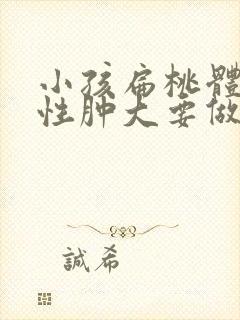 小孩扁桃體
性肿大要做
誠希